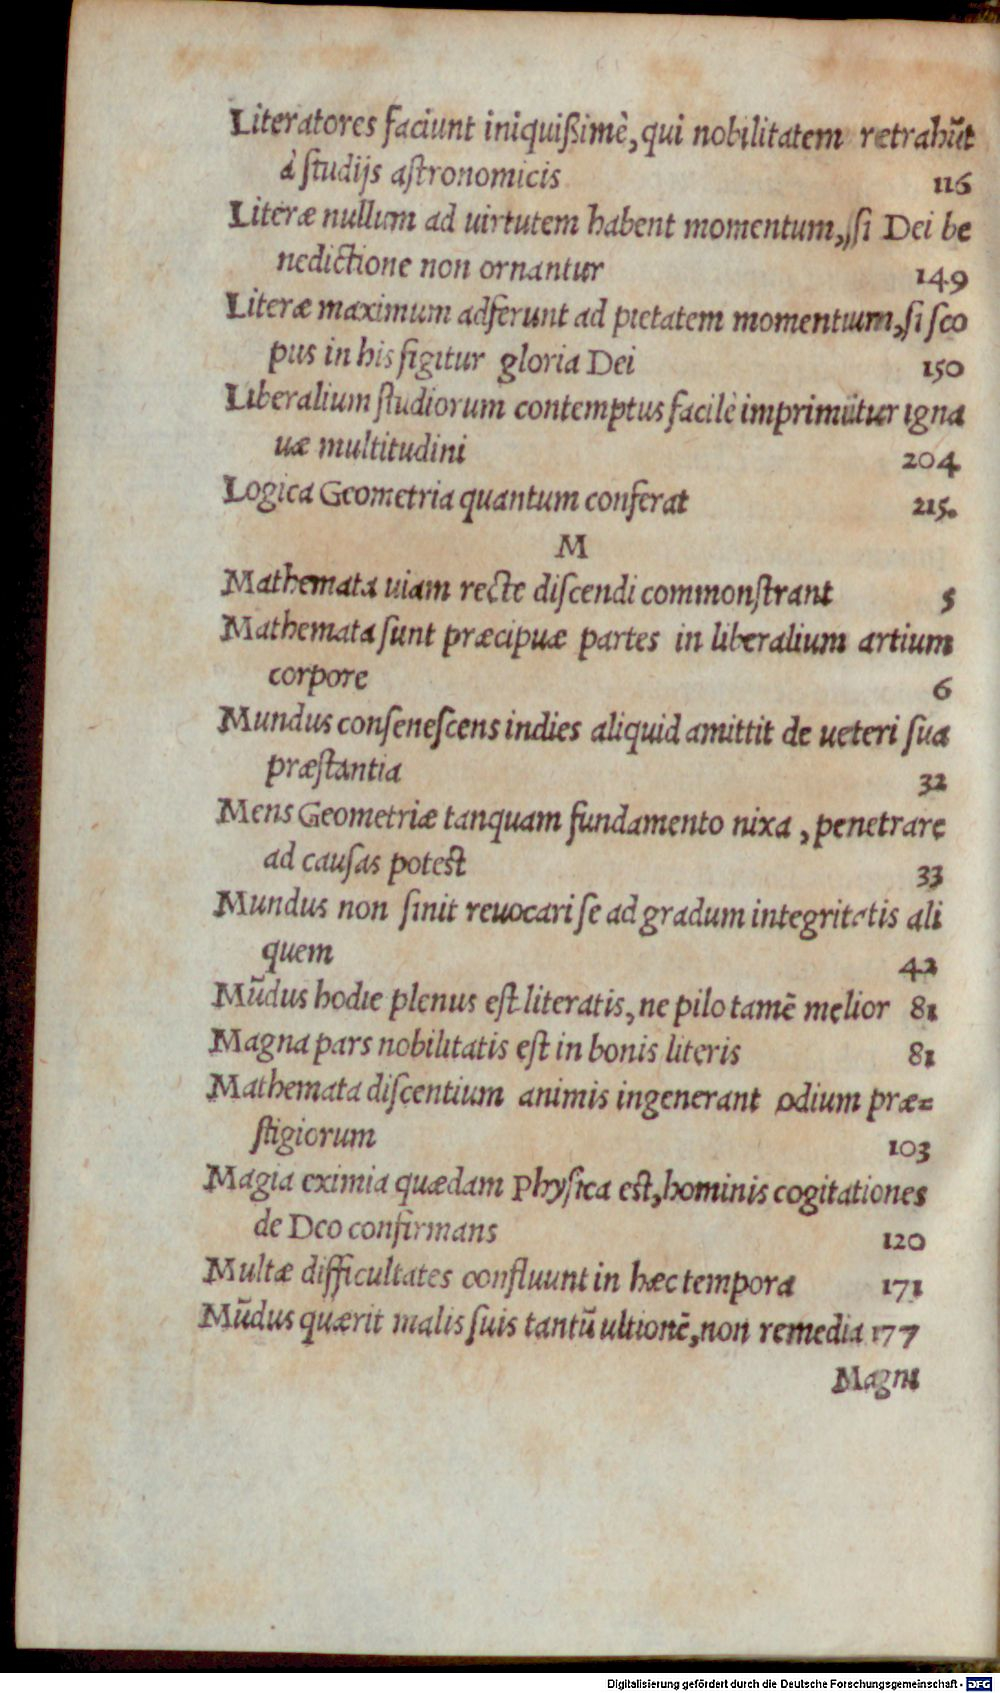 Literatores faciunt iniquißimè, qui nobilitatem retrahūt
à ſtudijs aſtronomicis 116
Literæ nullum ad uirtutem habent momentum, ſi Dei be
nedictione non ornantur 149
Literæ maximum adferunt ad pietatem momentum, ſi ſco
pus in his figitur gloria Dei 150
Liberalium ſtudiorum contemptus facilè imprimūtur igna
uæ multitudini 204
Logica Geometria quantum conferat 215.
M
Mathemata uiam recte diſcendi commonſtrant 5
Mathemata ſunt præcipuæ partes in liberalium artium
corpore 6
Mundus conſeneſcens indies aliquid amittit de ueteri ſua
præſtantia 32
Mens Geometriæ tanquam fundamento nixa, penetrare
ad cauſas poteſt 33
Mundus non ſinit reuocari ſe ad gradum integritatis ali
quem 42
Mūdus hodie plenus eſt literatis, ne pilo tamē melior 81
Magna pars nobilitatis eſt in bonis literis 81
Mathemata diſcentium animis ingenerant odium præ=
ſtigiorum 103
Magia eximia quædam Phyſica eſt, hominis cogitationes
de Deo confirmans 120
Multæ difficultates confluunt in hæc tempora 171
Mūdus quærit malis ſuis tantū ultionē, non remedia 177
Magni
Digitalisierung gefördert durch die Deutsche Forschungsgemeinschaft - DFG